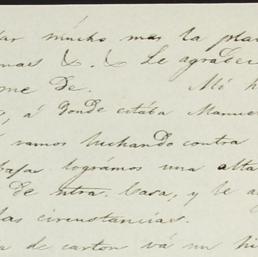 mucho mas la pla
maes &. &. Le agradec
me de. Mi h
á donde estaba Manue
vamos luchando contra
bajar logramos una alta
de ntra. Casa, y le a
las circunstancias.
a de carton vá un hi